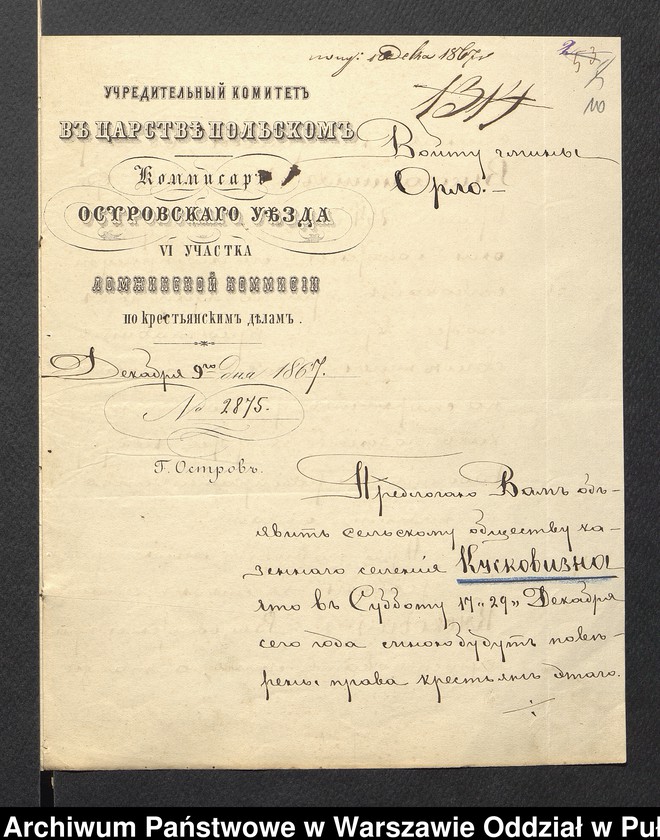 пол: 10 Декбра 1867 г
1314
УЧРЕДИТЕЛЬНЫЙ КОМИТЕТЪ
ВЪ ЦАРСТВѢ ПОЛЬСКОМЪ
Коммисаръ
ОСТРОВСКАГО УѢЗДА
VI УЧАСТКА
ЛОМЖИНСКОЙ КОММИСІИ
по крестьянскимъ дѣламъ.
Декабря 9го дня 1867.
№ 2875.
Г. Островъ.
Войту гмины
Орло.
Предлогаю Вамъ объ-
явить сельскому обществу ка-
зеннаго селенія Кусковизна
что въ Субботу 17 „29" Декабря
сего года мною будутъ повѣ-
рены права крестьянъ этаго
Archiwum Państwowe w Warszawie Oddział w Puł